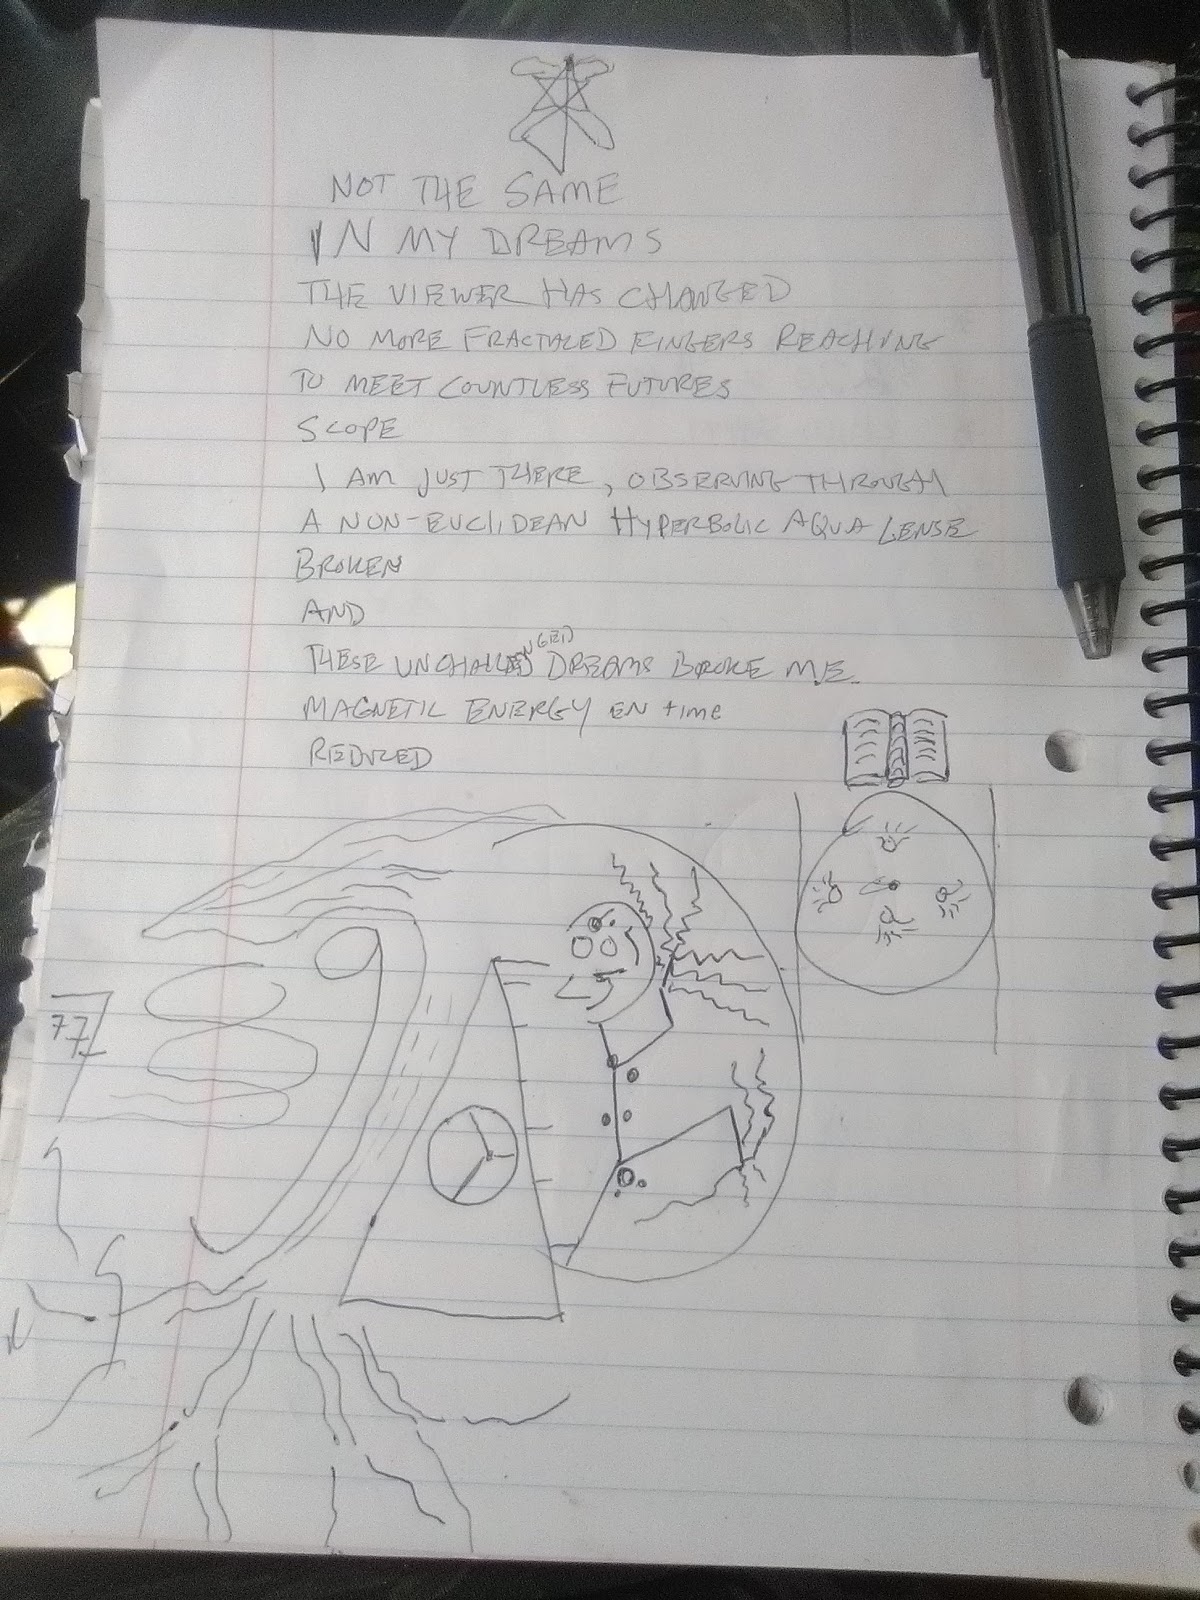 NOT THE SAME
IN MY DREAMS
THE VIEWER HAS CHANGED
NO MORE FRACTALED FINGERS REACHING
TO MEET COUNTLESS FUTURES
SCOPE
I AM JUST THERE, OBSERVING THROUGH
A NON-EUCLIDEAN HYPERBOLIC AQUA LENSE
BROKEN
AND
THESE UNCHALLENGED DREAMS BROKE ME.
MAGNETIC ENERGY EN time
REDUCED
77